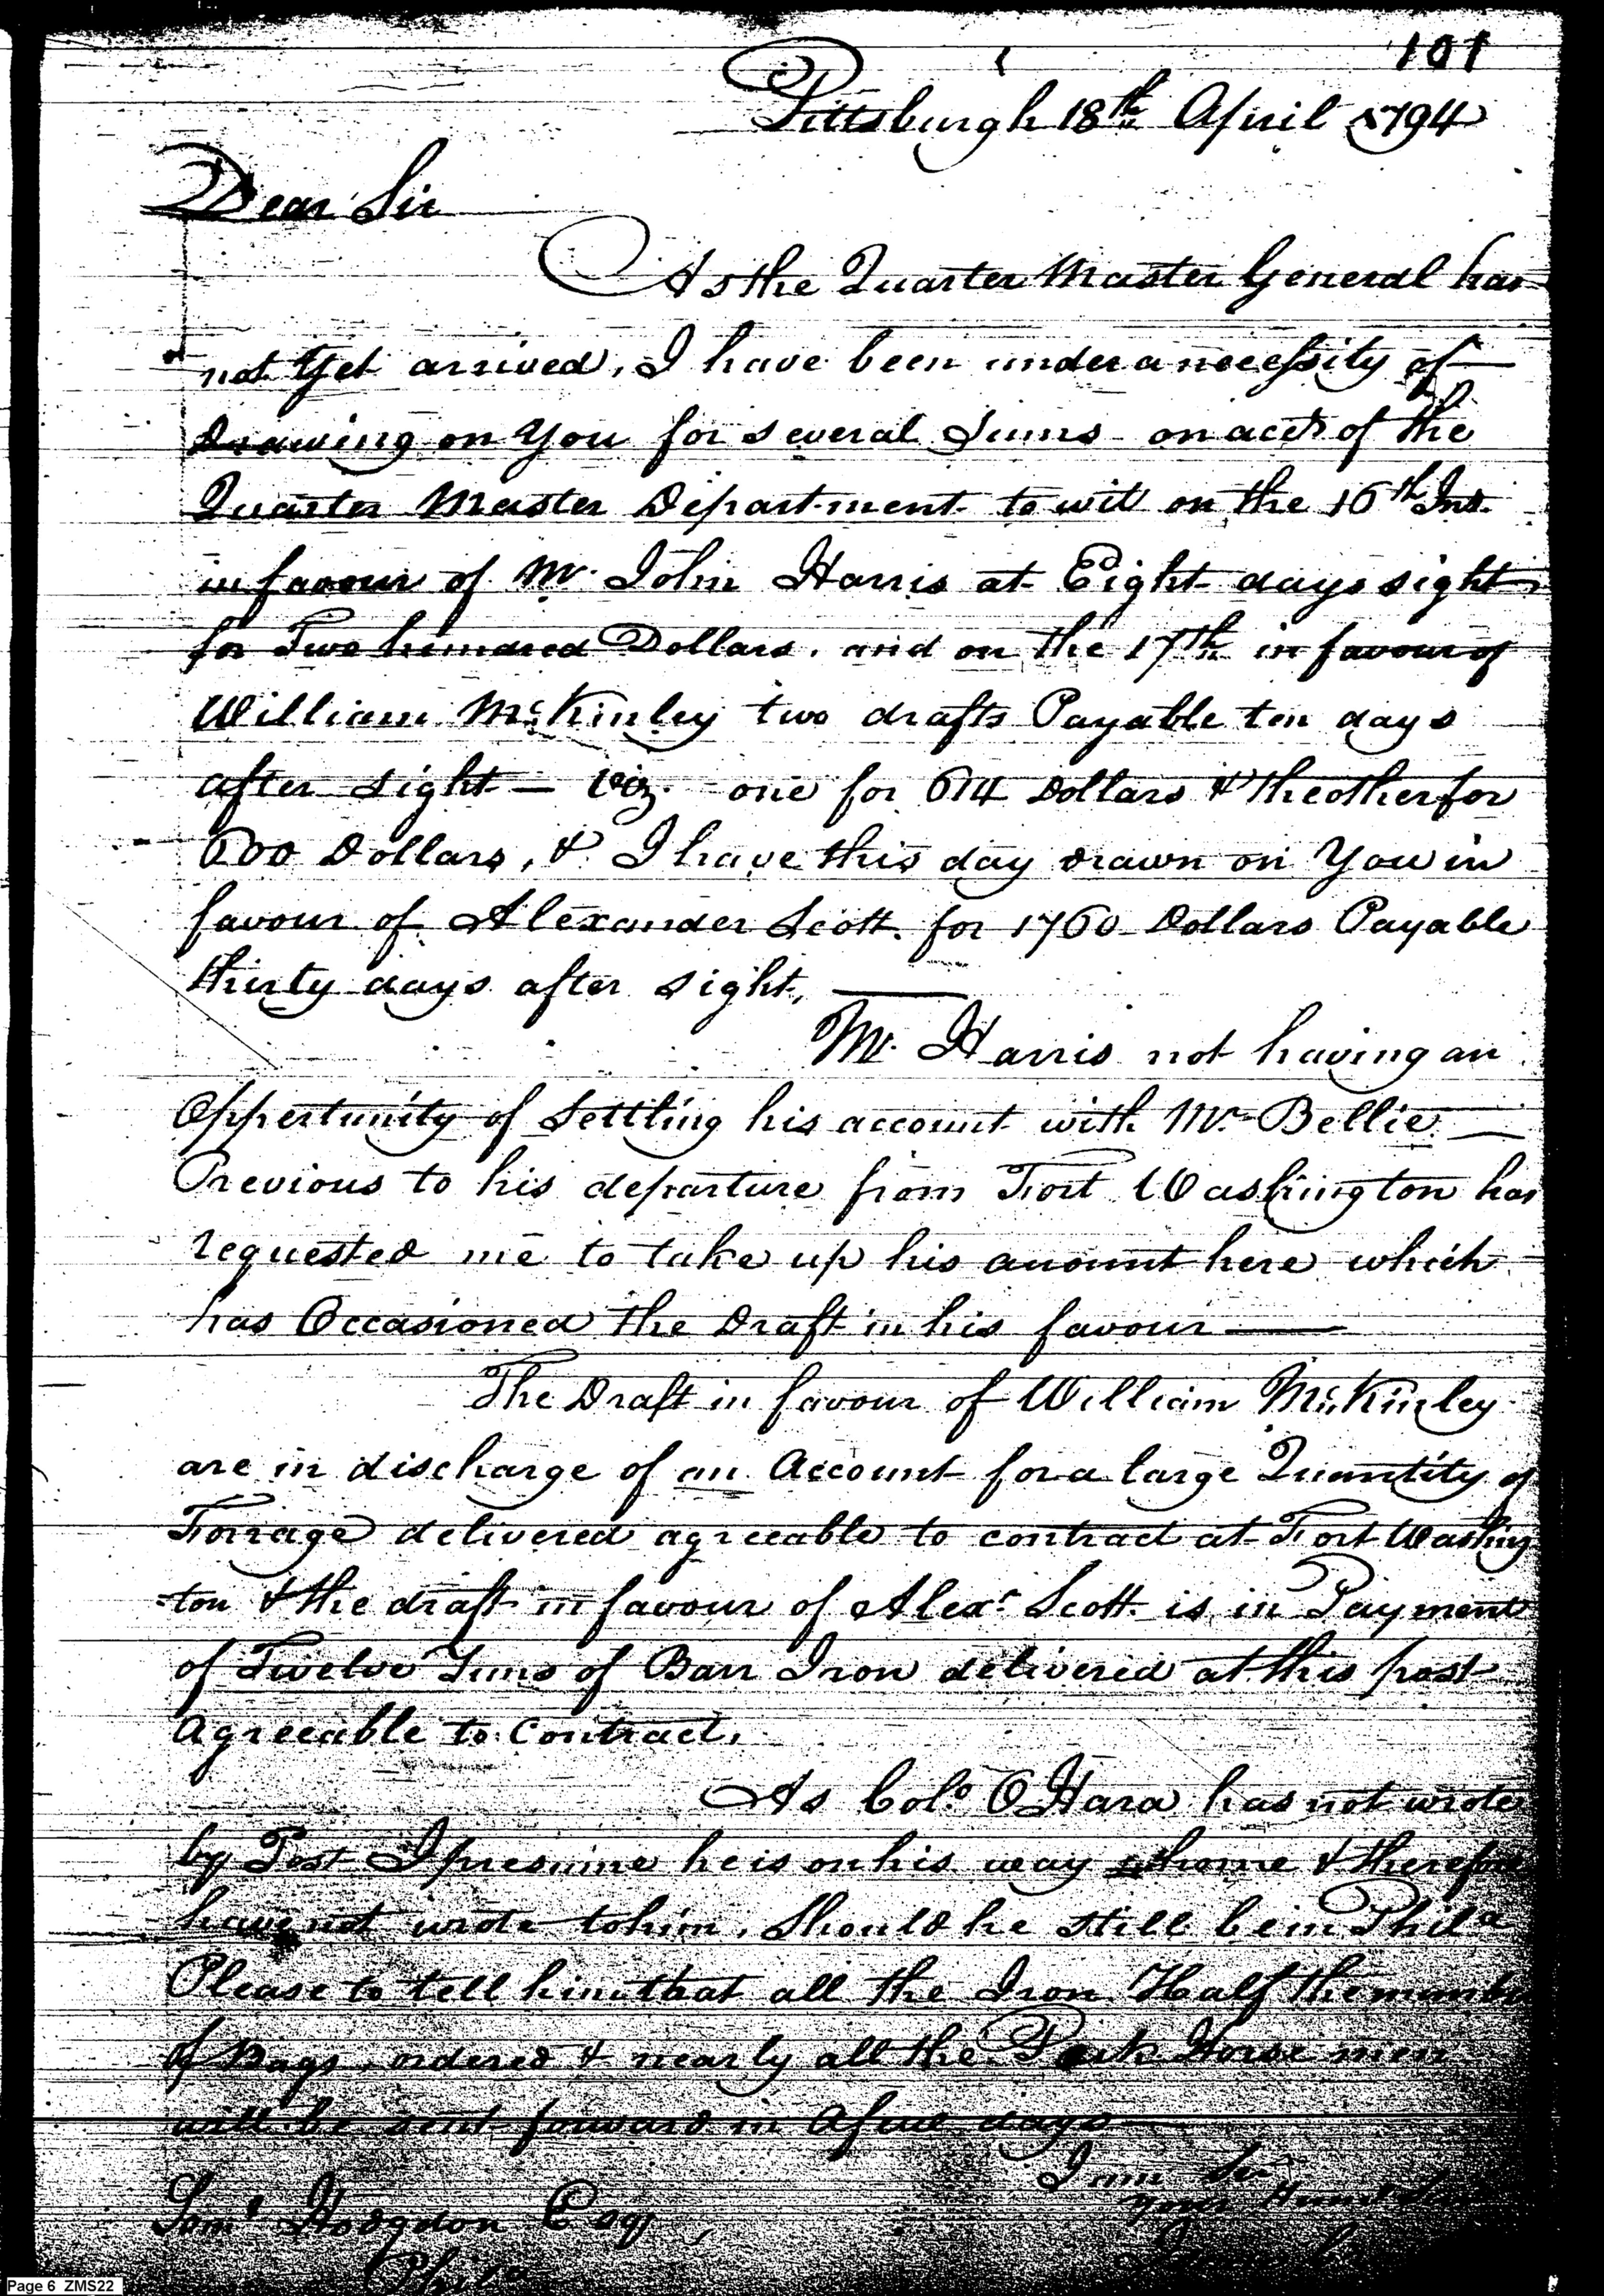 101
Pittsburgh 18th April 1794
Dear Sir
As the Quarter Master General has
not Yet arrived, I have been under a necessity of
Drawing on You for several Sums on acct. of the
Quarter Master Department to wit on the 16th Inst.
in favour of Mr. John Harris at Eight days sight
for Two hundred Dollars, and on the 17th in favour of
William McKinley two drafts Payable ten days
after sight — Viz. one for 614 Dollars & the other for
600 Dollars, & I have this day drawn on You in
favour of Alexander Scott for 1760 Dollars Payable
thirty days after sight, —
Mr. Harris not having an
Oppertunity of Settling his account with Mr. Bellie —
Previous to his departure from Fort Washington has
requested me to take up his amount here which
has Occasioned the Draft in his favour —
The Draft in favour of William McKinley
are in discharge of an Account for a large Quantity of
Forrage delivered agreeable to contract at Fort Washing
-ton & the draft in favour of Alexr. Scott is in Payment
of Twelve Tuns of Barr Iron delivered at this post
agreeable to Contract.
As Colo. OHara has not wrote
by Post I presume he is on his way home & therefore
have not wrote to him, Should he still be in Phila
Please to tell him that all the Iron Half the number
of Bags, ordered & nearly all the Pack Horse men
will be sent forward in a few days —
I am Sir
Your
Saml Hodgdon Esqr
Phila
Page 6 ZMS22